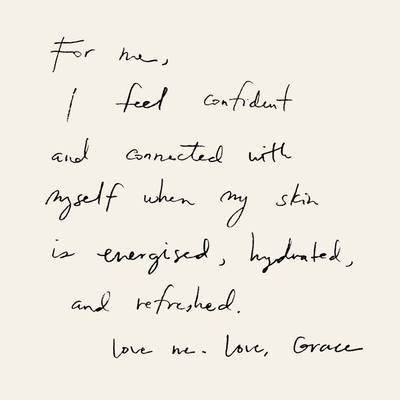 For me,
I feel confident
and connected with
myself when my skin
is energised, hydrated,
and refreshed.
love me. Love, Grace